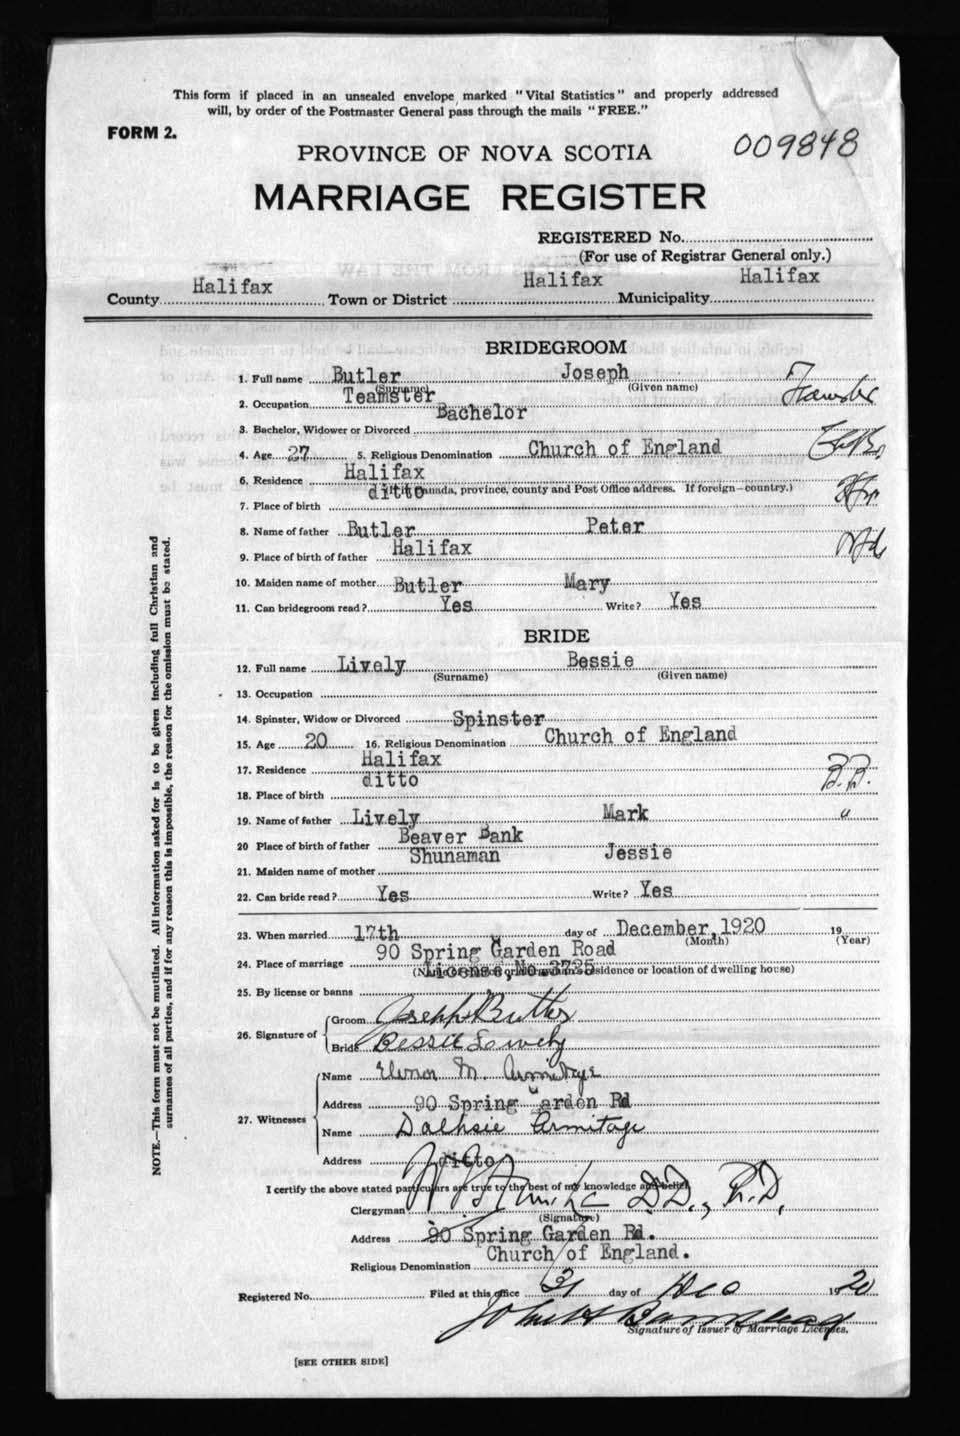 This form if placed in an unsealed envelope, marked "Vital Statistics" and properly addressed
will, by order of the Postmaster General pass through the mails "FREE."
FORM 2.
009848
PROVINCE OF NOVA SCOTIA
MARRIAGE REGISTER
REGISTERED No.
(For use of Registrar General only.)
County Halifax Town or District Halifax Municipality Halifax
BRIDEGROOM
1. Full name Butler Joseph
(Surname) (Given name)
2. Occupation Teamster
3. Bachelor, Widower or Divorced Bachelor
4. Age 27 5. Religious Denomination Church of England
6. Residence Halifax
Canada, province, county and Post Office address. If foreign—country.)
7. Place of birth ditto
8. Name of father Butler Peter
9. Place of birth of father Halifax
10. Maiden name of mother Butler Mary
11. Can bridegroom read? Yes Write? Yes
BRIDE
12. Full name Lively Bessie
(Surname) (Given name)
13. Occupation
14. Spinster, Widow or Divorced Spinster
15. Age 20 16. Religious Denomination Church of England
17. Residence Halifax
18. Place of birth ditto B.B.
19. Name of father Lively Mark "
20 Place of birth of father Beaver Bank
21. Maiden name of mother Shunaman Jessie
22. Can bride read? Yes Write? Yes
23. When married 17th day of December, 1920 19
(Month) (Year)
24. Place of marriage 90 Spring Garden Road
residence or location of dwelling house)
25. By license or banns License, No 2725
26. Signature of
Groom Joseph Butler
Bride Bessie Lively
27. Witnesses
Name M. Armitage
Address 90 Spring Garden Rd
Name Dalhsie Armitage
Address ditto
I certify the above stated particulars are true to the best of my knowledge and belief.
Clergyman D.D., Ph.D,
(Signature)
Address 90 Spring Garden Rd.
Religious Denomination Church of England.
Registered No. Filed at this office 31 day of Dec 1920
Signature of Issuer of Marriage Licenses.
[SEE OTHER SIDE]
NOTE.—This form must not be mutilated. All information asked for is to be given including full Christian and
surnames of all parties, and if for any reason this is impossible, the reason for the omission must be stated.